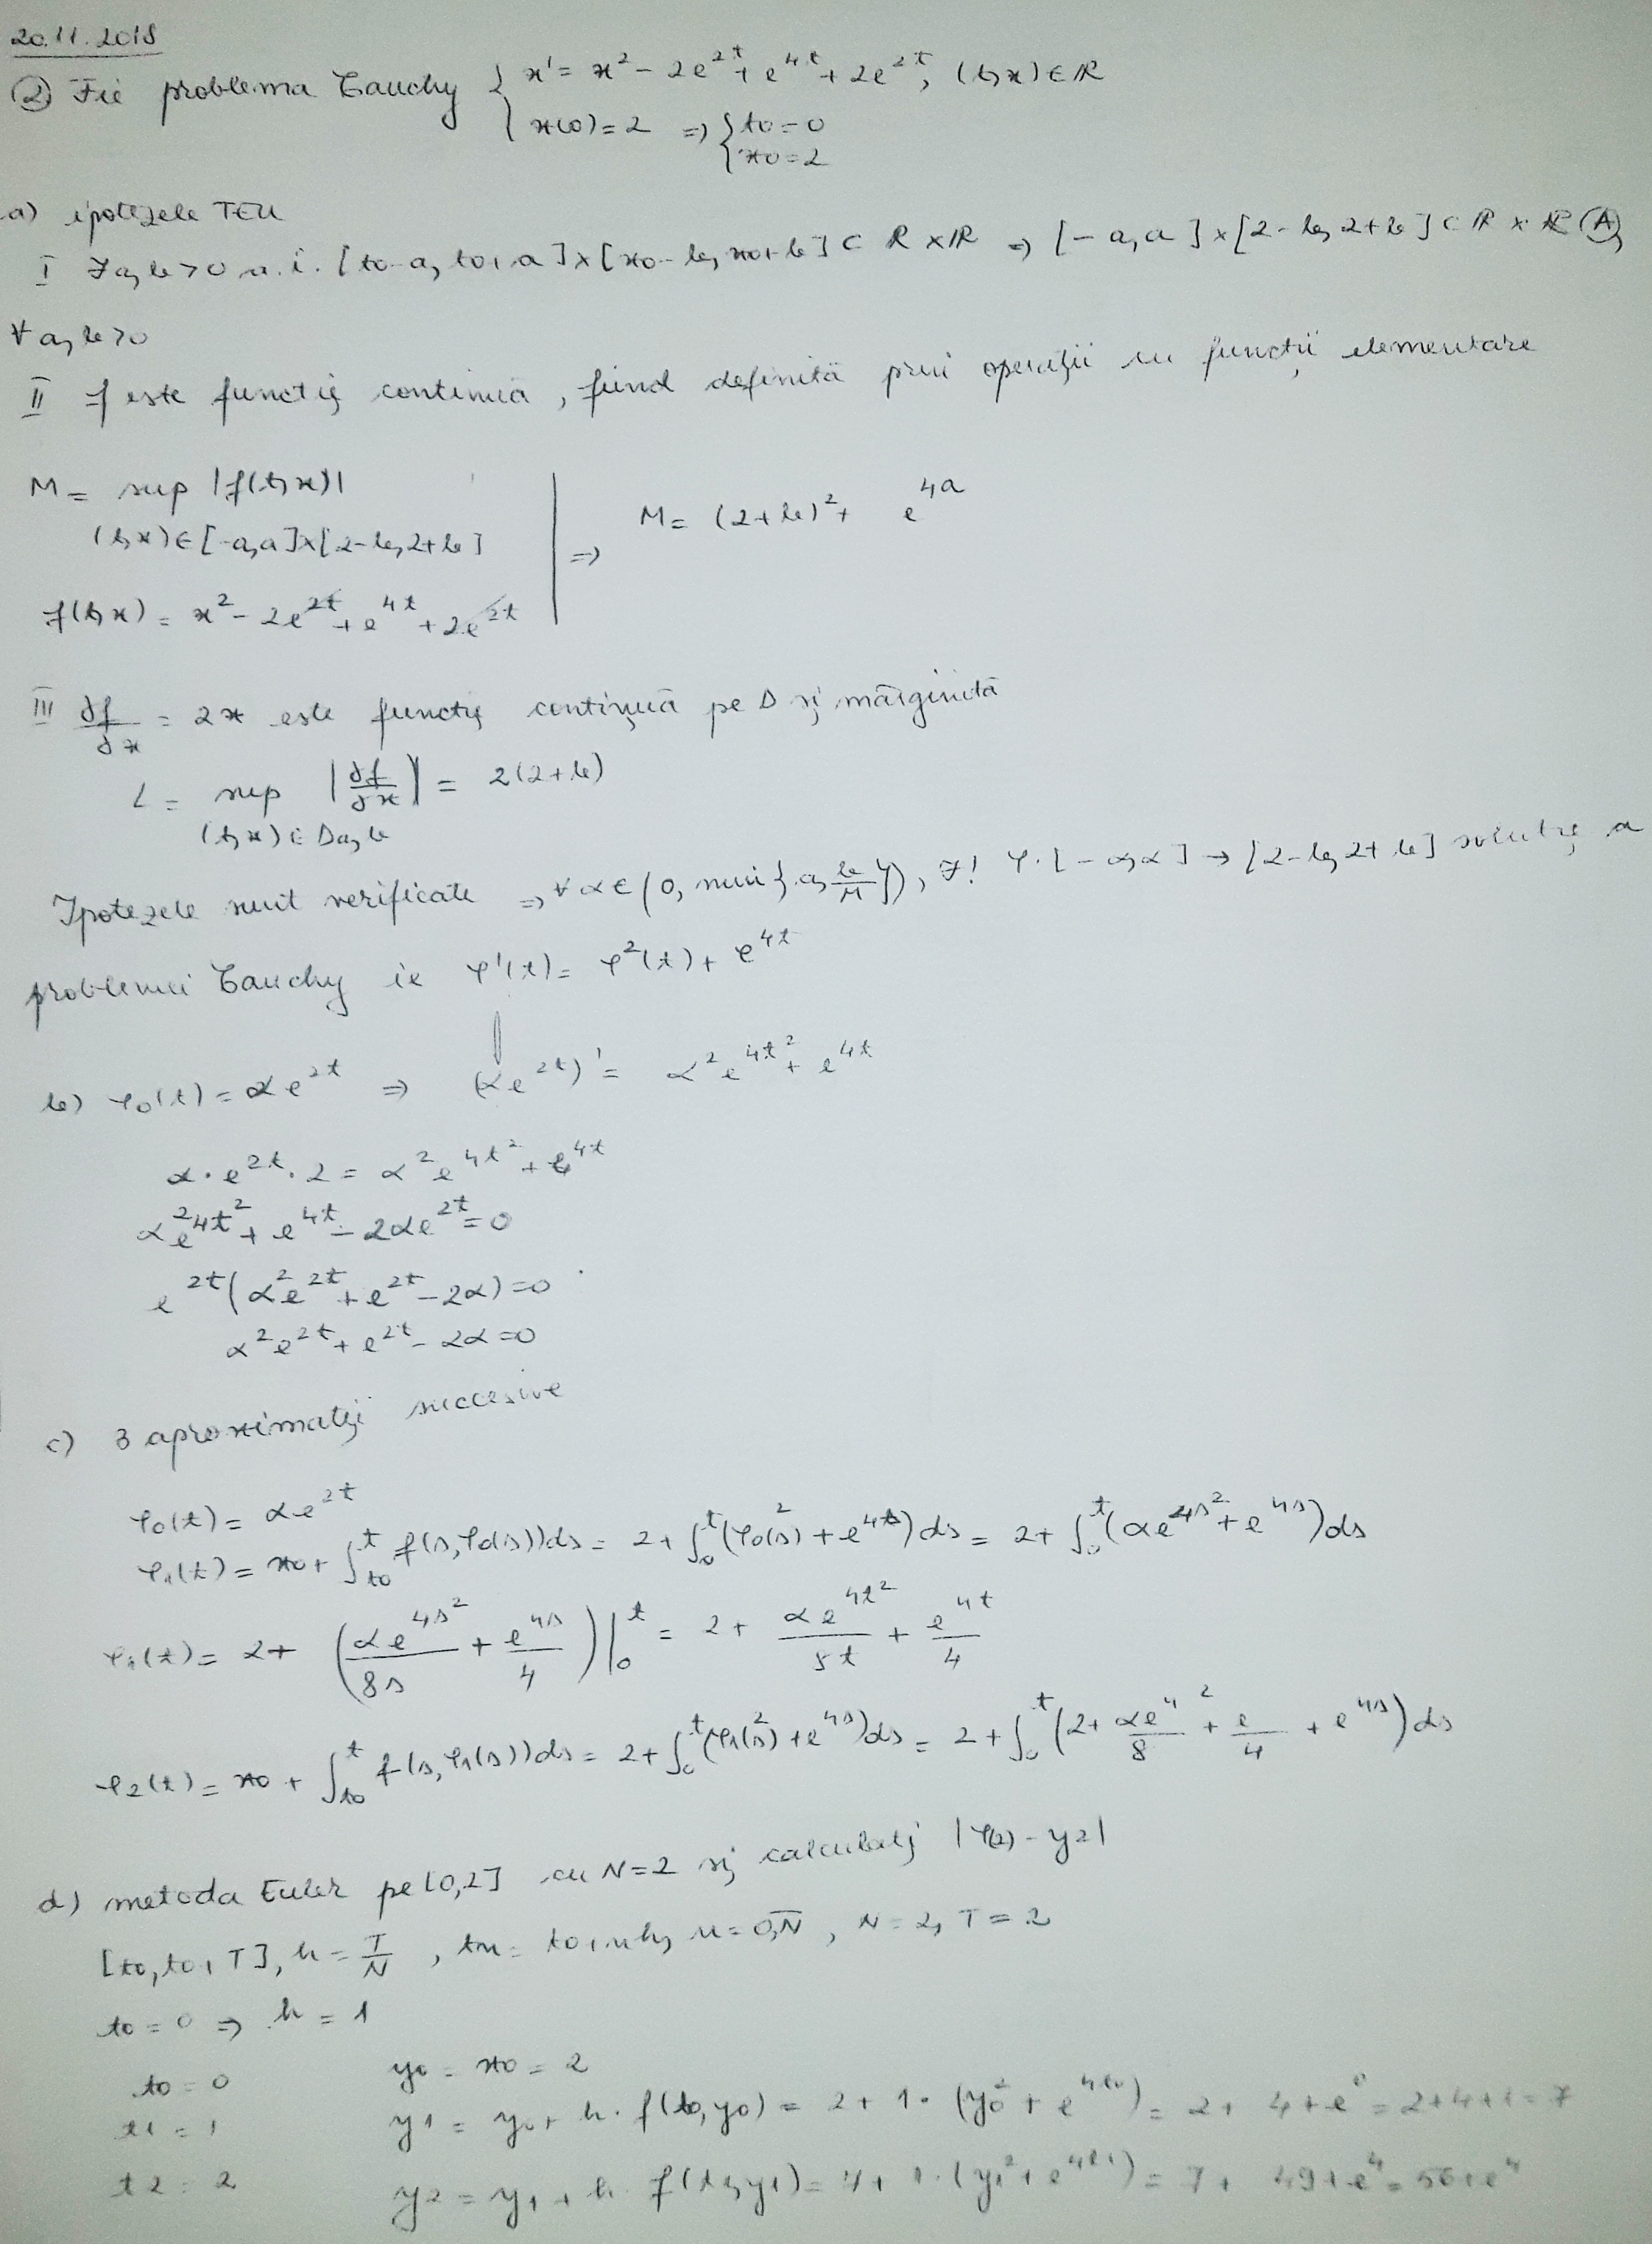 20.11.2018
② Fie problema Cauchy { x' = x² - 2e^{2t} + e^{4t} + 2e^{2t}, (t,x) ∈ ℝ
x(0) = 2 ⇒ { t0 = 0
x0 = 2
a) ipotezele TEU
I ∃ a,b > 0 a.î. [t0-a, t0+a] × [x0-b, x0+b] ⊂ ℝ × ℝ ⇒ [-a,a] × [2-b, 2+b] ⊂ ℝ × ℝ (A),
∀ a,b > 0
II f este funcție continuă, fiind definită prin operații cu funcții elementare
M = sup |f(t,x)|
(t,x) ∈ [-a,a] × [2-b, 2+b]
⇒ M = (2+b)² + e^{4a}
f(t,x) = x² - 2e^{2t} + e^{4t} + 2e^{2t}
III ∂f/∂x = 2x este funcție continuă pe D și mărginită
L = sup |∂f/∂x| = 2(2+b)
(t,x) ∈ Da,b
Ipotezele sunt verificate ⇒ ∀ α ∈ (0, min{a, b/M}), ∃! φ: [-α,α] → [2-b, 2+b] soluție a
problemei Cauchy ie φ'(t) = φ²(t) + e^{4t}
b) φ0(t) = αe^{2t} ⇒ (αe^{2t})' = α²e^{4t²} + e^{4t}
α · e^{2t} · 2 = α²e^{4t²} + e^{4t}
α²e^{4t²} + e^{4t} - 2αe^{2t} = 0
e^{2t}(α²e^{2t} + e^{2t} - 2α) = 0
α²e^{2t} + e^{2t} - 2α = 0
c) 3 aproximații succesive
φ0(t) = αe^{2t}
φ1(t) = x0 + ∫_{t0}^{t} f(s, φ0(s))ds = 2 + ∫_0^t (φ0(s)² + e^{4s})ds = 2 + ∫_0^t (αe^{4s²} + e^{4s})ds
φ1(t) = 2 + (αe^{4s²}/8s + e^{4s}/4)|_0^t = 2 + αe^{4t²}/8t + e^{4t}/4
φ2(t) = x0 + ∫_{t0}^{t} f(s, φ1(s))ds = 2 + ∫_0^t (φ1(s)² + e^{4s})ds = 2 + ∫_0^t (2 + αe^{4 2}/8 + e/4 + e^{4s})ds
d) metoda Euler pe [0,2] cu N=2 și calculați |φ(2) - y2|
[t0, t0+T], h = T/N, tn = t0+nh, n = 0,N̅, N = 2, T = 2
t0 = 0 ⇒ h = 1
t0 = 0 y0 = x0 = 2
t1 = 1 y1 = y0 + h · f(t0,y0) = 2 + 1 · (y0² + e^{4t0}) = 2 + 4 + e⁰ = 2+4+1 = 7
t2 = 2 y2 = y1 + h · f(t1,y1) = 7 + 1 · (y1² + e^{4t1}) = 7 + 49 + e⁴ = 56 + e⁴